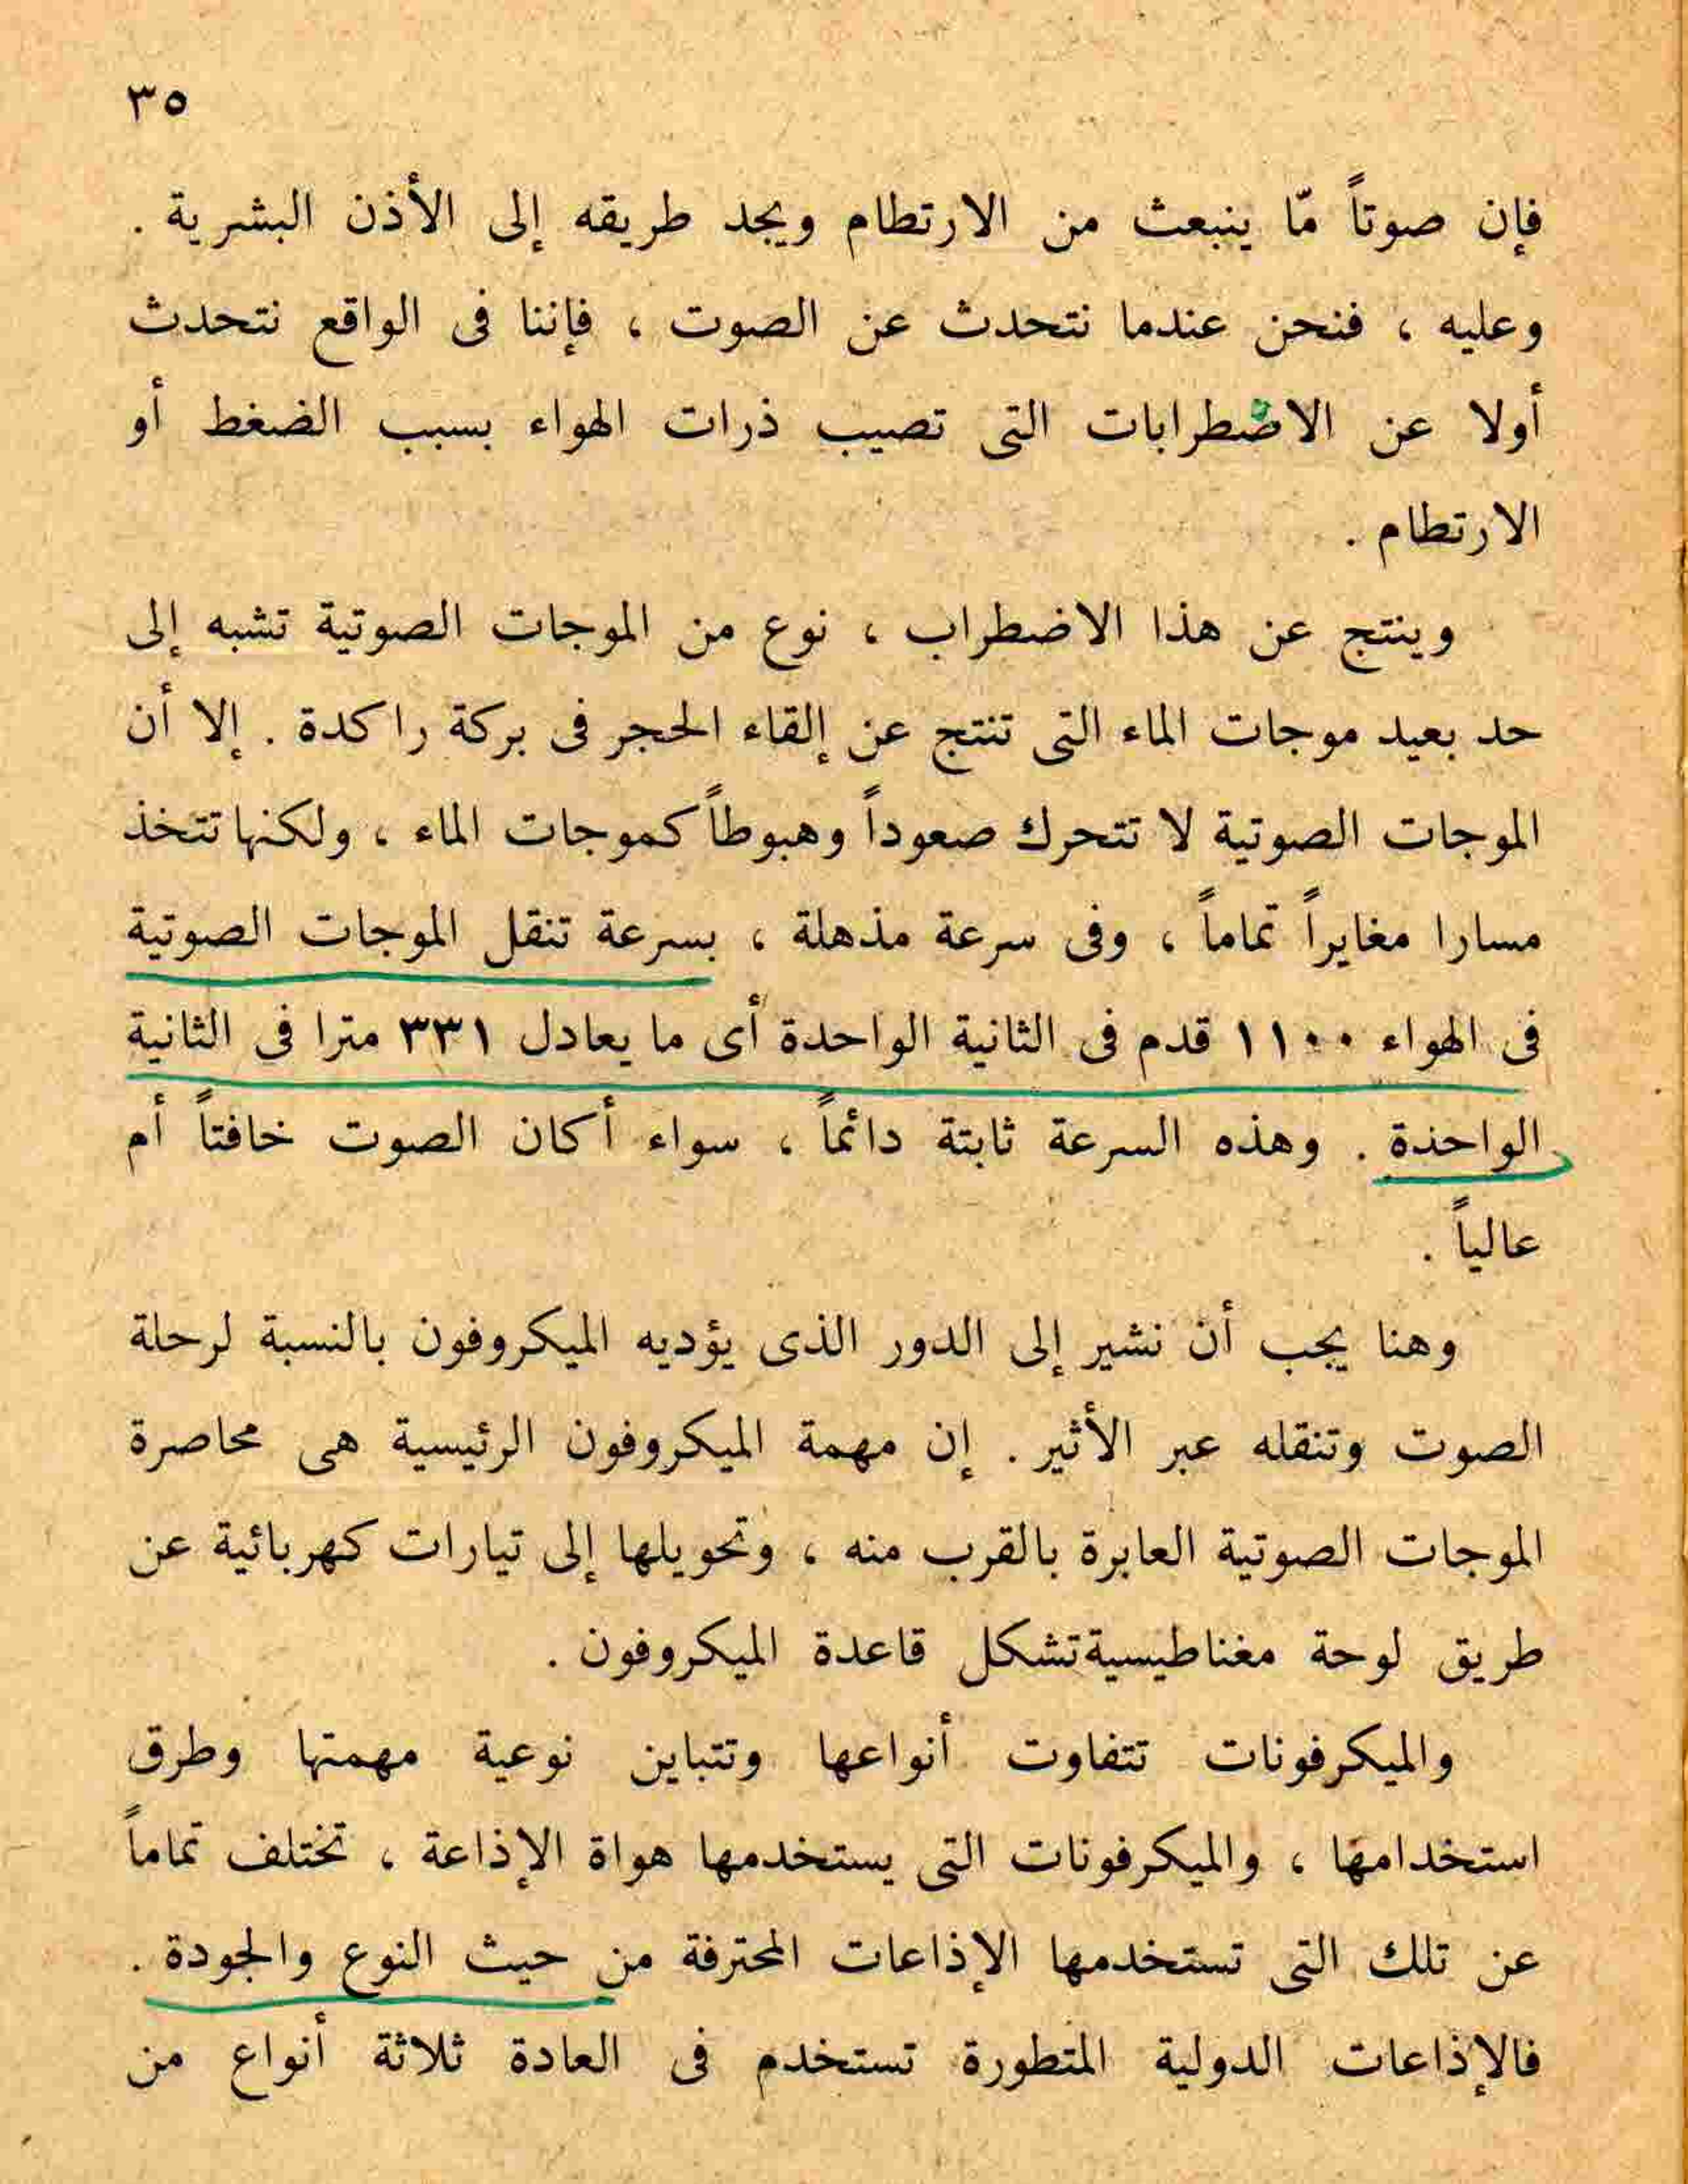 ٣٥
فإن صوتاً مّا ينبعث من الارتطام ويجد طريقه إلى الأذن البشرية .
وعليه ، فنحن عندما نتحدث عن الصوت ، فإننا فى الواقع نتحدث
أولا عن الاضطرابات التى تصيب ذرات الهواء بسبب الضغط أو
الارتطام .
وينتج عن هذا الاضطراب ، نوع من الموجات الصوتية تشبه إلى
حد بعيد موجات الماء التى تنتج عن إلقاء الحجر فى بركة راكدة . إلا أن
الموجات الصوتية لا تتحرك صعوداً وهبوطاً كموجات الماء ، ولكنها تتخذ
مسارا مغايراً تماماً ، وفى سرعة مذهلة ، بسرعة تنقل الموجات الصوتية
فى الهواء ١١٠٠ قدم فى الثانية الواحدة أى ما يعادل ٣٣١ مترا في الثانية
الواحذة . وهذه السرعة ثابتة دائماً ، سواء أكان الصوت خافتاً أم
عالياً .
وهنا يجب أن نشير إلى الدور الذى يؤديه الميكروفون بالنسبة لرحلة
الصوت وتنقله عبر الأثير . إن مهمة الميكروفون الرئيسية هى محاصرة
الموجات الصوتية العابرة بالقرب منه ، وتحويلها إلى تيارات كهربائية عن
طريق لوحة مغناطيسية تشكل قاعدة الميكروفون .
والميكرفونات تتفاوت أنواعها وتتباين نوعية مهمتها وطرق
استخدامها ، والميكرفونات التى يستخدمها هواة الإذاعة ، تختلف تماماً
عن تلك التى تستخدمها الإذاعات المحترفة من حيث النوع والجودة .
فالإذاعات الدولية المتطورة تستخدم فى العادة ثلاثة أنواع من